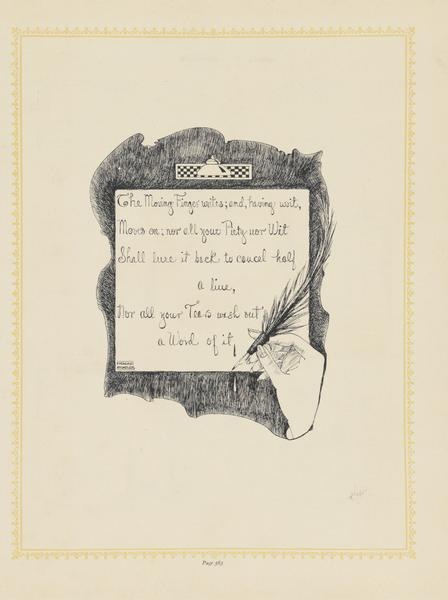 The Moving Finger writes; and, having writ,
Moves on; nor all your Piety nor Wit
Shall lure it back to cancel half
a line,
Nor all your Tears wash out
a Word of it,
Page